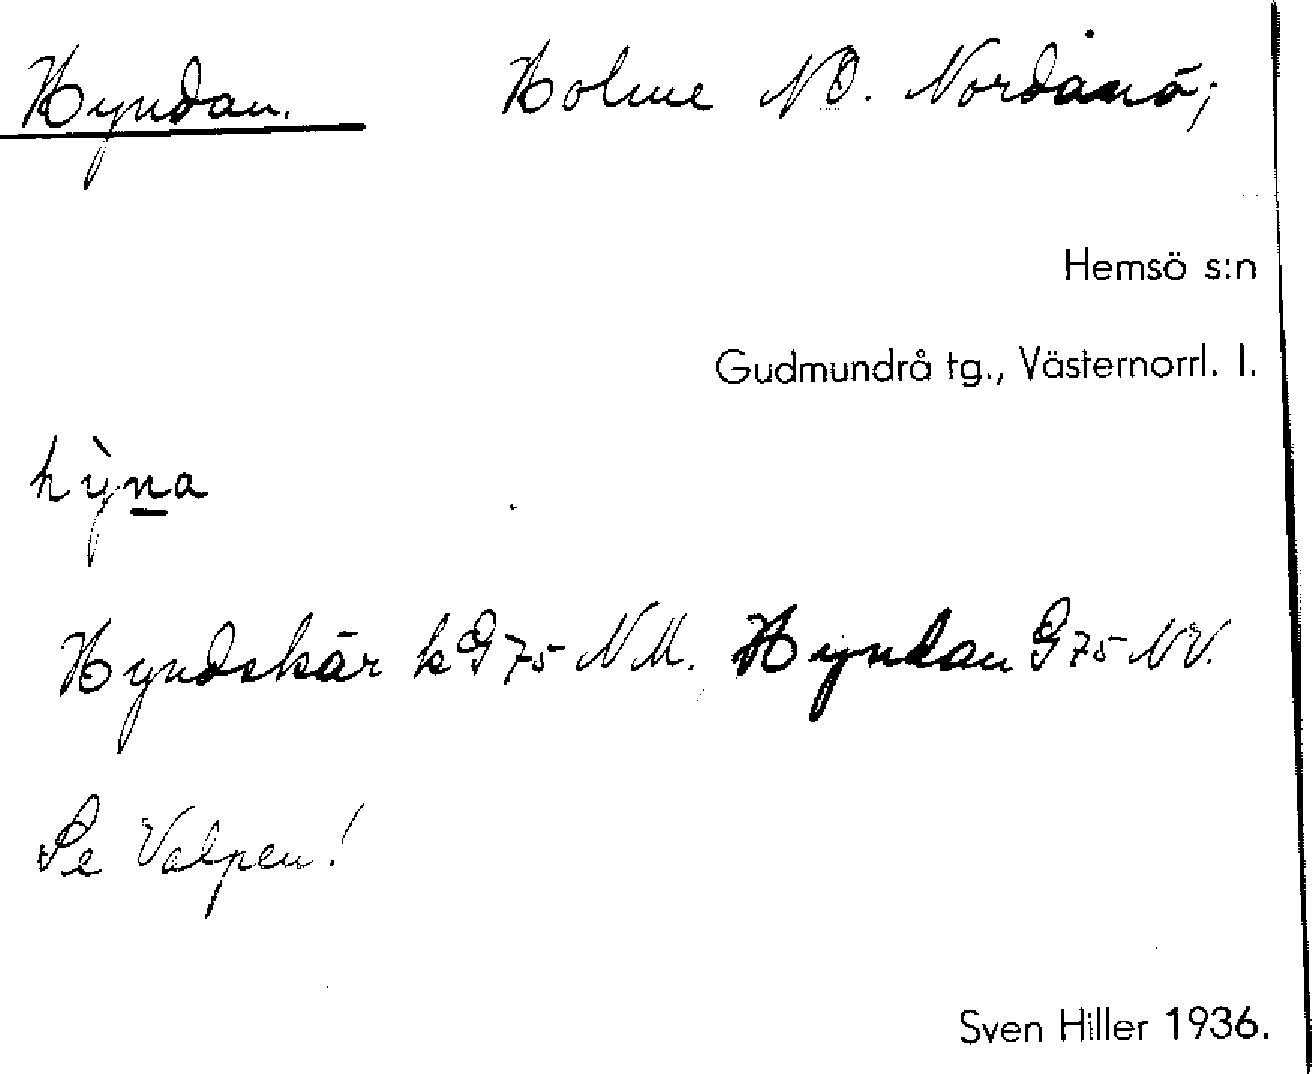 Hyndan. Holme NO. Nordanö;
Hemsö s:n
Gudmundrå tg., Västernorrl. l.
hỳna
Hyndskär kG75 NM. Hyndan G75 NV.
Se Valpen!
Sven Hiller 1936.